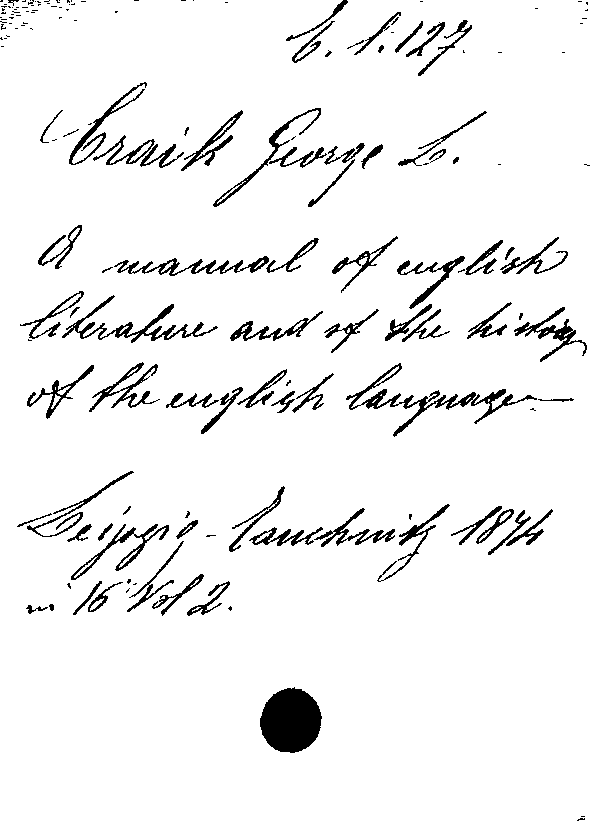 E. 1. 127
Craik George L.
A manual of english
literature and of the history
of the english language
Leipzig - Tauchnitz 1874
in 16° Vol 2.